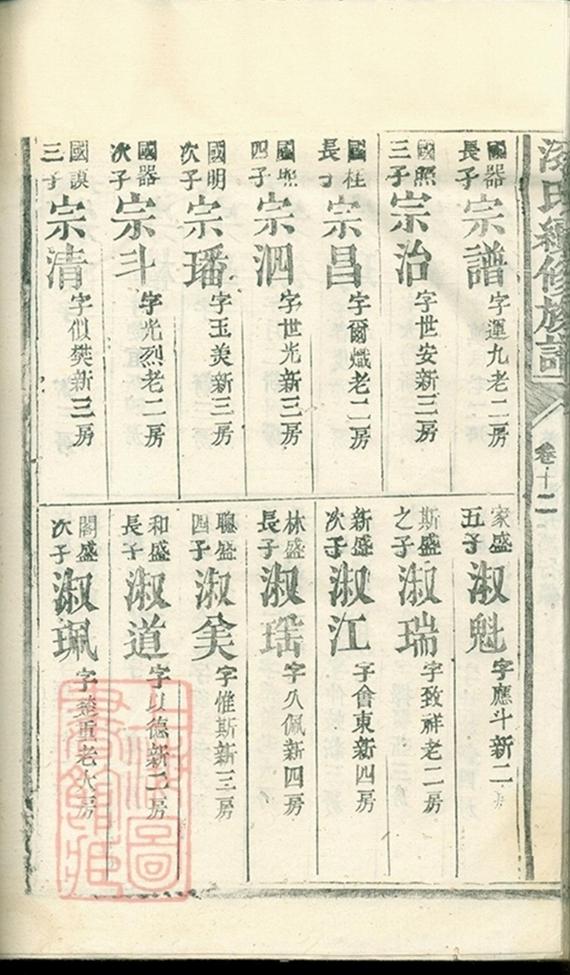 氏續修族譜
卷十二
國器長子宗譜字運九老二房
國熙三子宗治字世安新三房
國柱長子宗昌字爾熾老二房
國熙四子宗泗字世光新三房
國明次子宗璠字玉美新三房
國器次子宗斗字光烈老二房
國謨三子宗清字似樊新三房
家盛五子淑魁字應斗新二
斯盛之子淑瑞字致祥老二房
新盛次子淑江字會東新四房
林盛長子淑瑤字久佩新四房
聰盛四子淑美字惟斯新三房
和盛長子淑道字以德新二房
閣盛次子淑珮字楚重老大房
上海圖書館藏